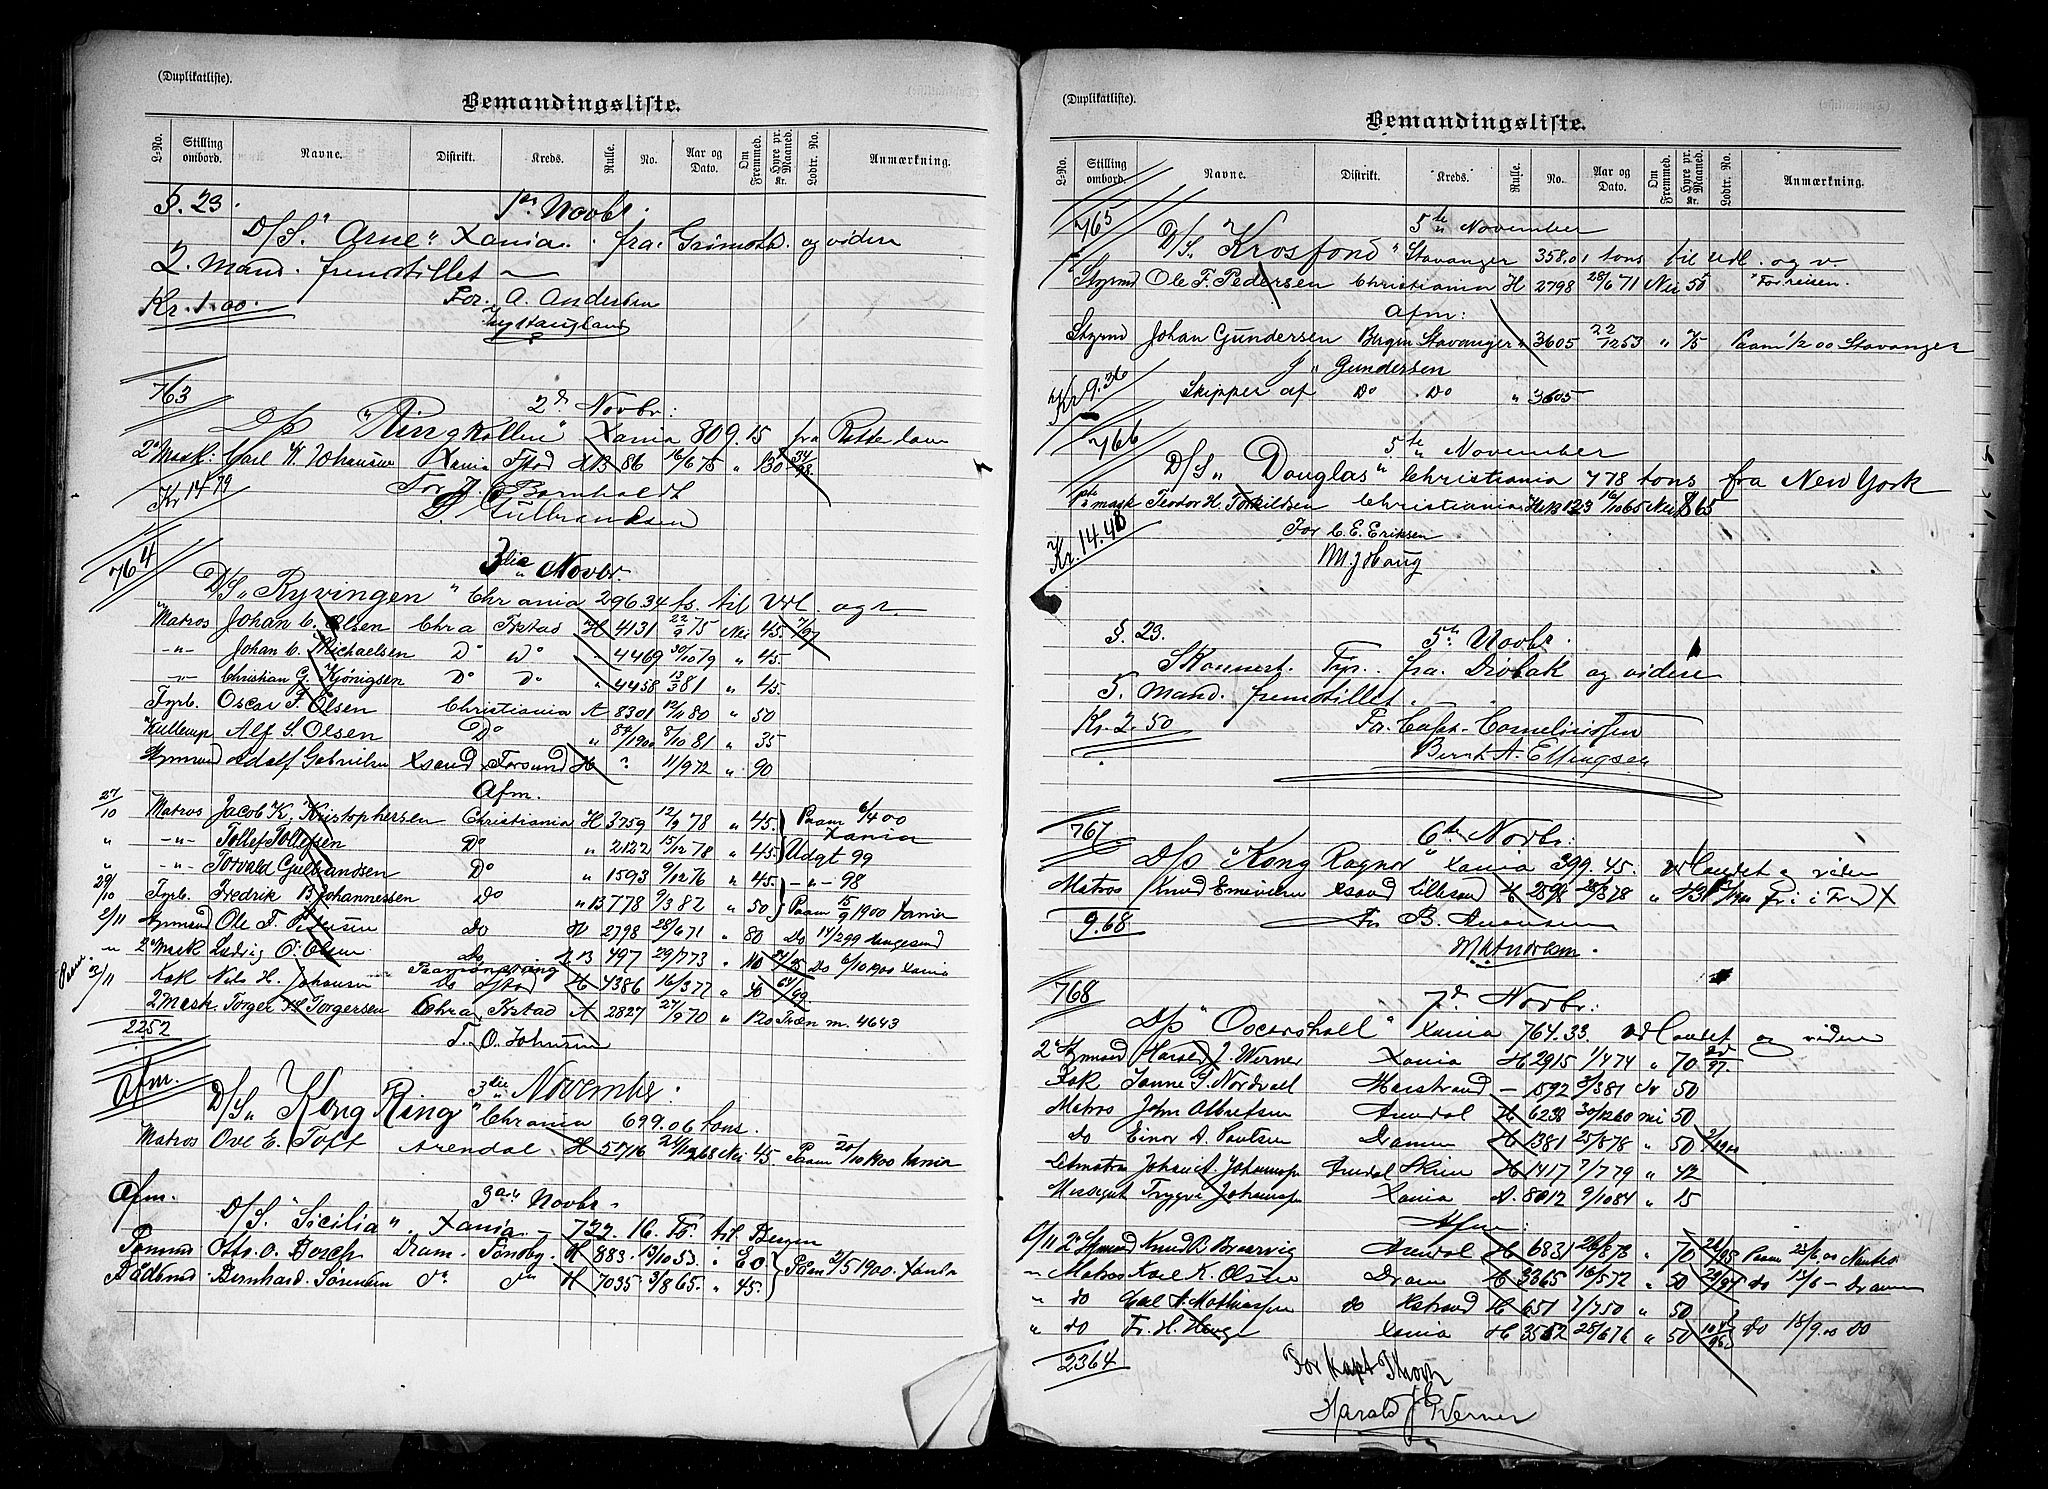 (Duplikatliste).
Bemandingsliste.
L-No. Stilling ombord. Navne. Distrikt. Kreds. Rulle. No. Aar og Dato. Om Fremmed. Hyre pr. Maaned. Kr. Lodtr. No. Anmærkning.
§. 23. 1ste Novbr.
D/S. "Arne" Xania. fra Grimstd. og videre
2. Mand. fremstillet
Kr. 1.00. For. A. Andersen
763 2d Novbr:
D/S "Ringkollen" Xania 809.15 fra Rotterdam
2' Mask: Carl W. Johansen Xania Fstad HB 86 16/6 75 " 130 34/98
Kr 14.79 For J. Barnholdt
Gulbrandsen
764 3die Novbr.
D/S "Ryvingen" Chrania 296.34 ts. til Udl. og v.
Matros Johan C. Olsen Chra Fkstad H 4131 22/9 75 Nei 45. 7/97
-"- Johan C. Michaelsen Do Do " 4469 30/10 79 " 45
-"- Christian G. Kjönigsen Do Do " 4458 13/3 81 " 45
Fyrb. Oscar F. Olsen Christiania A 8301 12/11 80 " 50
Kullemp Alf S. Olsen Do " 84/1900 8/10 81 " 35
Styrmand Adolf Gabrielsen Xsand Farsund H ? 11/9 72 " 90
Afm.
27/10 Matros Jacob K. Kristophersen Christiania H 3759 12/9 78 " 45. Paam 6/4 00 Xania
" -"- Tollef Tollefsen Do " 2122 15/12 78 " 45. Udgt 99
" -"- Torvald Gulbrandsen Do " 1593 9/12 76 " 45. -"- 98
29/10 Fyrb. Fredrik B. Johannessen Do " B 778 9/3 82 " 50 Paam 15/9 1900 Xania
2/11 Styrmand Ole F. Pedersen Do H 2798 28/6 71 " 80 Do 14/2 99 Haugesund
" 2' Mask Ludvig O. Olsen Do B 497 29/7 73 " 110 Do 6/10 1900 Xania
Paamönstring
2/11 Kok Nils H. Johansen Do Fstad H 4386 16/3 77 " 40 64/99.
2 Mask. Torger Torgersen Chra Fkstad A 2827 27/9 70 " 120 m. 4643
22.52 T. O. Johnsen
Afm. 3die November.
D/S "Kong Ring" Chrania 699.06 tons.
Matros Ove E. Toft Arendal H 5716 24/12 68 Nei 45. Paam 20/10 1900 Xania
Afm. 3die Novbr.
D/S. "Sicilia". Xania - 722.16. To. til Bergen
Otto. O. Borch Dram. Tönsbg H 883. 13/10 53 Paam 2/5 1900. Xania
Baadsmd Bernhard. Sörensen do do H 7035 3/8 65. " 45.
(Duplikatliste).
Bemandingsliste.
L-No. Stilling ombord. Navne. Distrikt. Kreds. Rulle. No. Aar og Dato. Om Fremmed. Hyre pr. Maaned. Kr. Lodtr. No. Anmærkning.
765 5te November
D/S. "Krosfond" Stavanger 358.01 tons til Udl. og v.
Styrmd Ole F. Pedersen Christiania H 2798 28/6 71 Nei 50 "For reisen.
Afm:
Styrmd Johan Gundersen Bergen Stavanger " 3605 22/12 53 " 75 Paam 1/2 00 Stavanger
J. Gundersen
Kr 9.36 Skipper af Do Do " 3605
766 5te November
D/S "Douglas" Christiania 778 tons fra New York
1ste mask Teodor H. Torkildsen Christiania HB 123 16/10 65 Nei 165
Kr. 14.48 For C. E. Eriksen
M. J. Haug
§. 23. 5te Novbr.
Skonnert. Fyr. fra. Dröbak og videre
5. Mand. fremstillet.
Kr. 2.50 For. Capt. Corneliussen
Bernt A. Ellingsen
767 6te Novbr:
D/S "Kong Ragnar" Xania 399.45. Udlandet og videre
Matros Knud Emersen Xsand Lillesand H 28/8 78
9.68 For B. Andersen
M. Andersen.
768 7de Novbr:
D/S "Oscarshall" Xania 764.33. Udlandet og videre
2' Styrmd Harald J. Werner Xania H 2915 1/4 74 " 70
Kok Janne F. Nordvall Marstrand - 1592 3/3 81 do 50
Matros John Albretsen Arendal H 6238 30/12 60 nei 50
do Einar A. Poulsen Drammen H 1381 25/8 78 " 50 2/1900
Letmatros Johan A. Johannsen Arendal Skien H 1417 7/7 79 " 42
Messegut Trygve Johannsen Xania A. 8012 9/10 84 " 15
Afm:
6/11 2' Styrmand Knud B. Braarvig Arendal H 6831 26/8 76 " 70 Paam 23/6.00 Nantes
" Matros Karl K. Olsen Dram H 3365 16/5 72 " 50 do 15/6 - Drammen
" do Carl A. Mathiassen do Hstrand H 651 7/7 50 " 50
" do Fr. H. Hauge Xania H 3562 25/6 76 " 50 do 15/9.00 do
23.64 For Kapt Thorn
Harald J. Werner